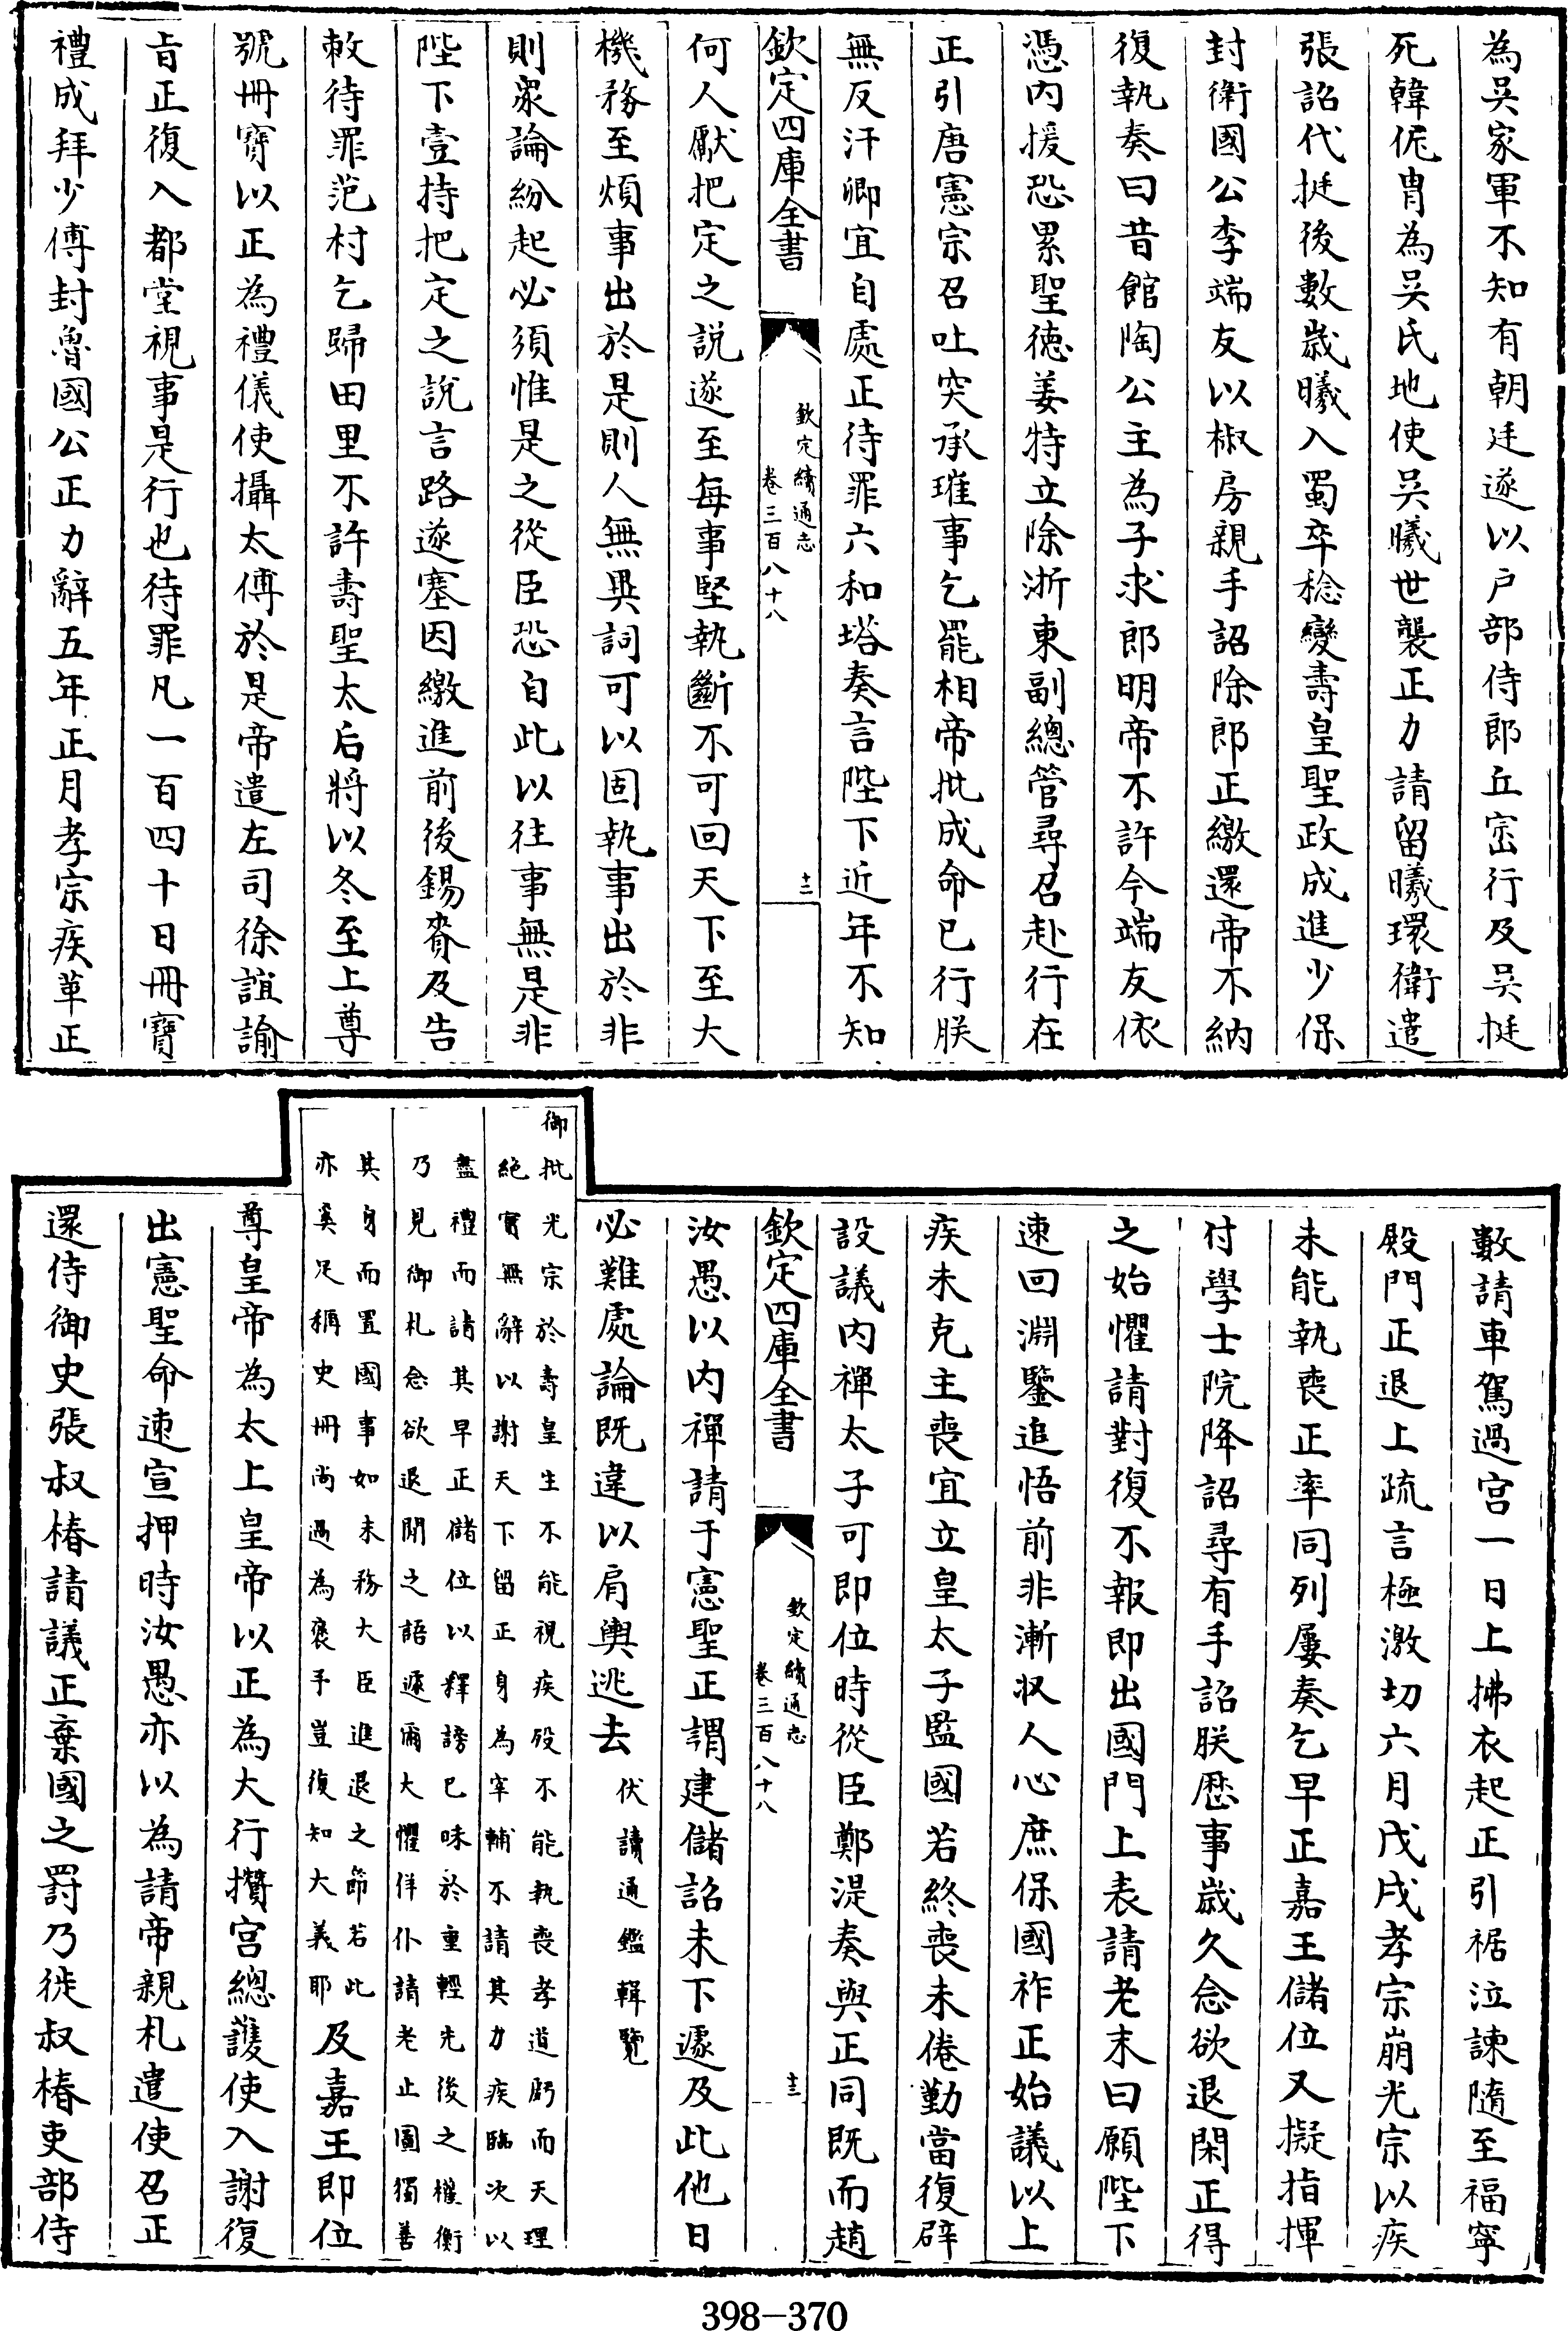 為吳家軍不知有朝廷遂以户部侍郎丘崈行及吳挺
死韓侂胄為吳氏地使吳曦世襲正力請留曦環衛遣
張詔代挺後數歲曦入蜀卒稔變壽皇聖政成進少保
封衛國公李端友以椒房親手詔除郎正繳還帝不納
復執奏曰昔館陶公主為子求郎明帝不許今端友依
憑内援恐累聖徳姜特立除浙東副總管尋召赴行在
正引唐憲宗召吐突承璀事乞罷相帝批成命已行朕
無反汗卿宜自處正待罪六和塔奏言陛下近年不知
欽定四庫全書
欽定續通志
卷三百八十八
十二
何人獻把定之説遂至每事堅執斷不可回天下至大
機務至煩事出於是則人無異詞可以固執事出於非
則衆論紛起必須惟是之從臣恐自此以往事無是非
陛下壹持把定之説言路遂塞因繳進前後錫賚及告
敕待罪范村乞歸田里不許壽聖太后將以冬至上尊
號冊寶以正為禮儀使攝太傅於是帝遣左司徐誼諭
旨正復入都堂視事是行也待罪凡一百四十日冊寶
禮成拜少傅封魯國公正力辭五年正月孝宗疾革正
數請車駕過宫一日上拂衣起正引裾泣諫隨至福寧
殿門正退上疏言極激切六月戊戌孝宗崩光宗以疾
未能執喪正率同列屢奏乞早正嘉王儲位又擬指揮
付學士院降詔尋有手詔朕歷事歲久念欲退閑正得
之始懼請對復不報即出國門上表請老末曰願陛下
速回淵鑒追悟前非漸収人心庶保國祚正始議以上
疾未克主喪宜立皇太子監國若終喪未倦勤當復辟
設議内禪太子可即位時從臣鄭湜奏與正同既而趙
欽定四庫全書
欽定續通志
卷三百八十八
十三
汝愚以内禪請于憲聖正謂建儲詔未下遽及此他日
必難處論既違以肩輿逃去伏讀通鑑輯覽
御批光宗於壽皇生不能視疾殁不能執喪孝道虧而天理
絶實無辭以謝天下留正身為宰輔不請其力疾臨次以
盡禮而請其早正儲位以釋謗已昧於重輕先後之權衡
乃見御札念欲退閒之語遽爾大懼佯仆請老止圖獨善
其身而置國事如未務大臣進退之節若此
亦奚足稱史冊尚過為褒予豈復知大義耶及嘉王即位
尊皇帝為太上皇帝以正為大行攢宫總護使入謝復
出憲聖命速宣押時汝愚亦以為請帝親札遣使召正
還侍御史張叔椿請議正棄國之罰乃徙叔椿吏部侍
398-370